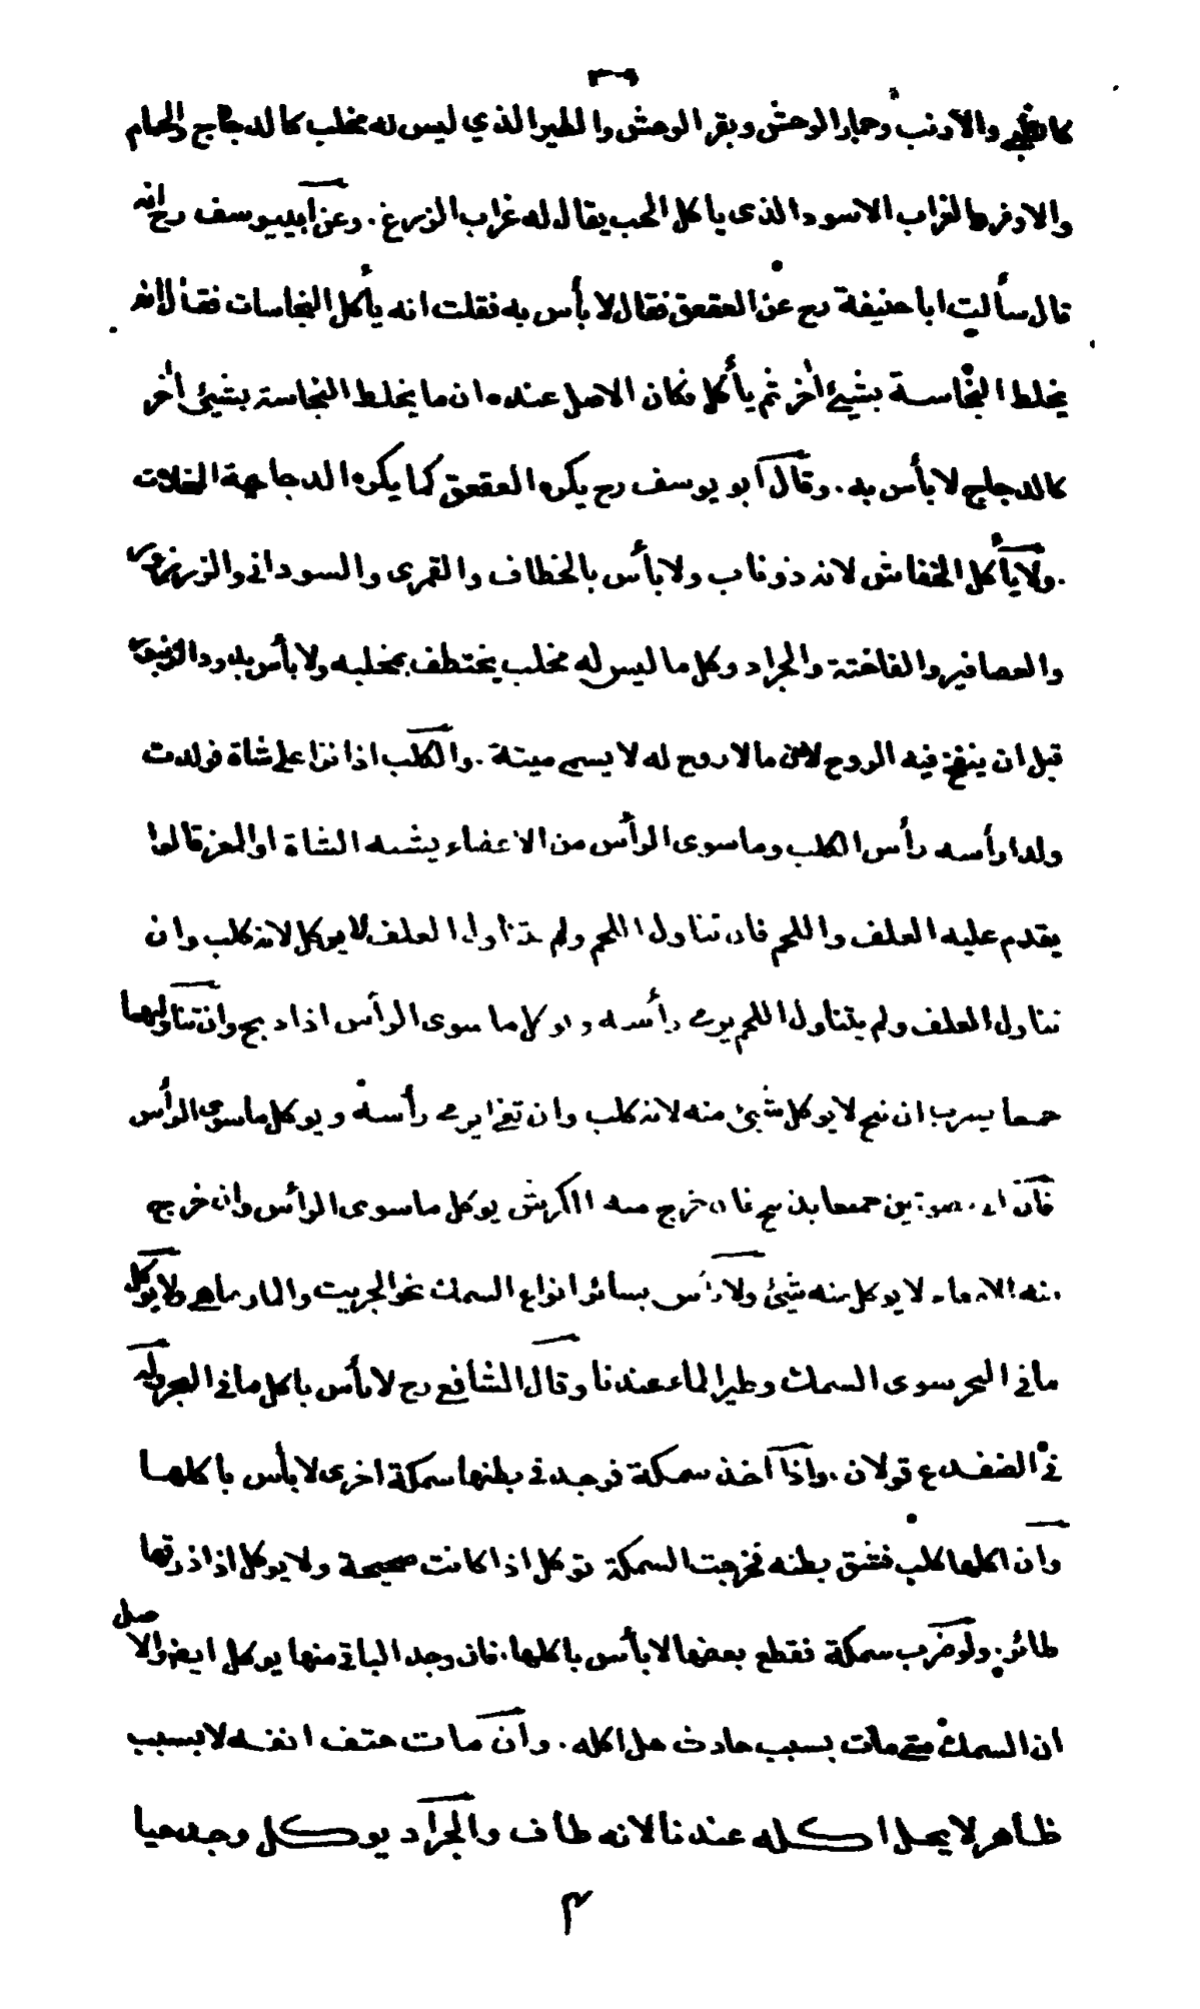 كالظبي والارنب وحمار الوحش وبقر الوحش والطير الذي ليس له مخلب كالدجاج والحمام
والاوز والغراب الاسود الذى ياكل الحب يقال له غراب الزرع . وعن ابييوسف رح انه
قال سألت ابا حنيفة رح عن العقعق فقال لا بأس به فقلت انه يأكل النجاسات فقال انه
يخلط النجاسة بشيئ اٰخر ثم يأكل فكان الاصل عنده ان ما يخلط النجاسة بشيئ اٰخر
كالدجاج لا بأس به . وقال ابو يوسف رح يكره العقعق كما يكره الدجاجة المخلات
. ولا يأكل الخفاش لانه ذو ناب ولا بأس بالخطاف والقمرى والسودانى والزرزور
والعصافير والفاختة والجراد وكل ما ليس له مخلب يختطف بمخلبه ولا بأس بدود الزنبور
قبل ان ينفخ فيه الروح لان ما لا روح له لا يسمى ميتة . والكلب اذا نزا على شاة فولدت
ولدا رأسه رأس الكلب وما سوى الرأس من الاعضاء يشبه الشاة او المعز قالوا
يقدم عليه العلف واللحم فان تناول اللحم ولم يتناول العلف لا يوكل لانه كلب وان
تناول العلف ولم يتناول اللحم يرمى رأسه ويوكل ما سوى الرأس اذا ذبح وان تناولهما
جمعا يضرب ان نبح لا يوكل شيئ منه لانه كلب وان ثغا يرمى رأسه ويوكل ما سوى الرأس
فان اتى بصوتين جمعا يذبح فان خرج منه الكرش يوكل ما سوى الرأس وان خرج
منه الامعاء لا يوكل منه شيئ ولا بأس بسائر انواع السمك نحو الجريث والمارماهى ولا يوكل
ما فى البحر سوى السمك وطير الماء عندنا وقال الشافع رح لا بأس باكل ما فى البحر وله
فى الضفدع قولان . واذا اخذ سمكة فوجد فى بطنها سمكة اخرى لا بأس باكلها
وان اكلها كلب فشق بطنه فخرجت السمكة توكل اذا كانت صحيحة ولا يوكل اذا ذرقها
طائر . ولو ضرب سمكة فقطع بعضها لا بأس باكلها . فان وجد الباقى منها يوكل ايض والاصل
ان السمك متى مات بسبب حادث حل اكله . وان مات حتف انفه لا بسبب
ظاهر لا يحل اكله عندنا لانه طاف والجراد يوكل وجد حيا
م